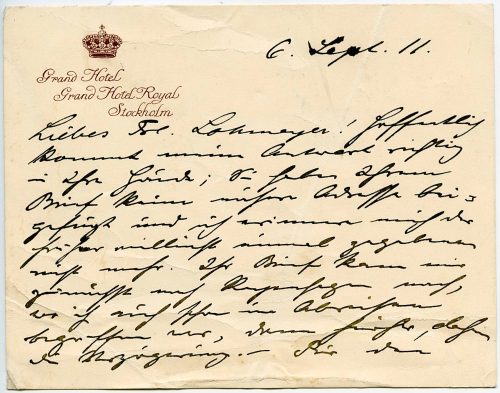 6. Sept. 11.
Grand Hotel
Grand Hotel Royal
Stockholm
Liebes Frl. Lohmeyer! Hoffentlich
kommt meine Antwort richtig
in Ihre Hände; Sie haben Ihrem
Brief keine nähere Adresse bei-
gefügt und ich erinnere mich der
früher vielleicht einmal gegebenen
nicht mehr. Ihr Brief kam mir
zunächst nach Kopenhagen nach,
wo ich auch schon im Abreisen
begriffen war, dann hierher, daher
die Verzögerung. – Für den